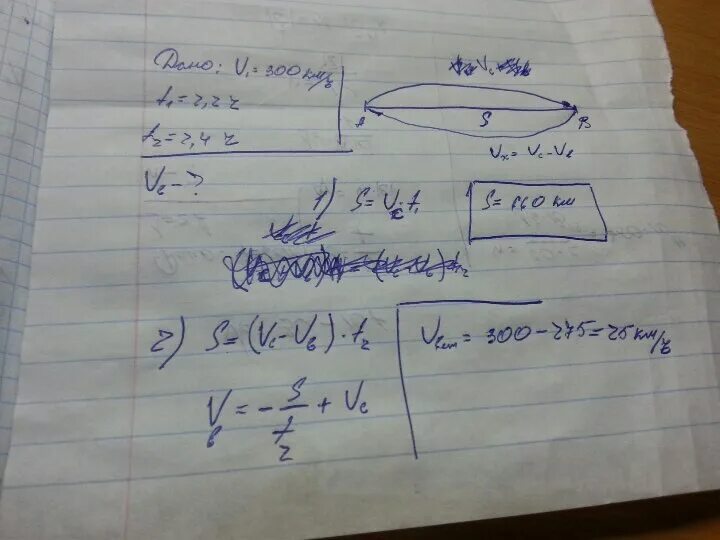 Дано: V₁ = 300 км/ч
t₁ = 2,2 ч
t₂ = 2,4 ч
V₂ - ?
Vс
A S B
Vx = Vс - Vв
1) S = Vс · t₁
S = 660 км
2) S = (Vс - Vв) · t₂
Vв = - S/t₂ + Vс
Vвет = 300 - 275 = 25 км/ч